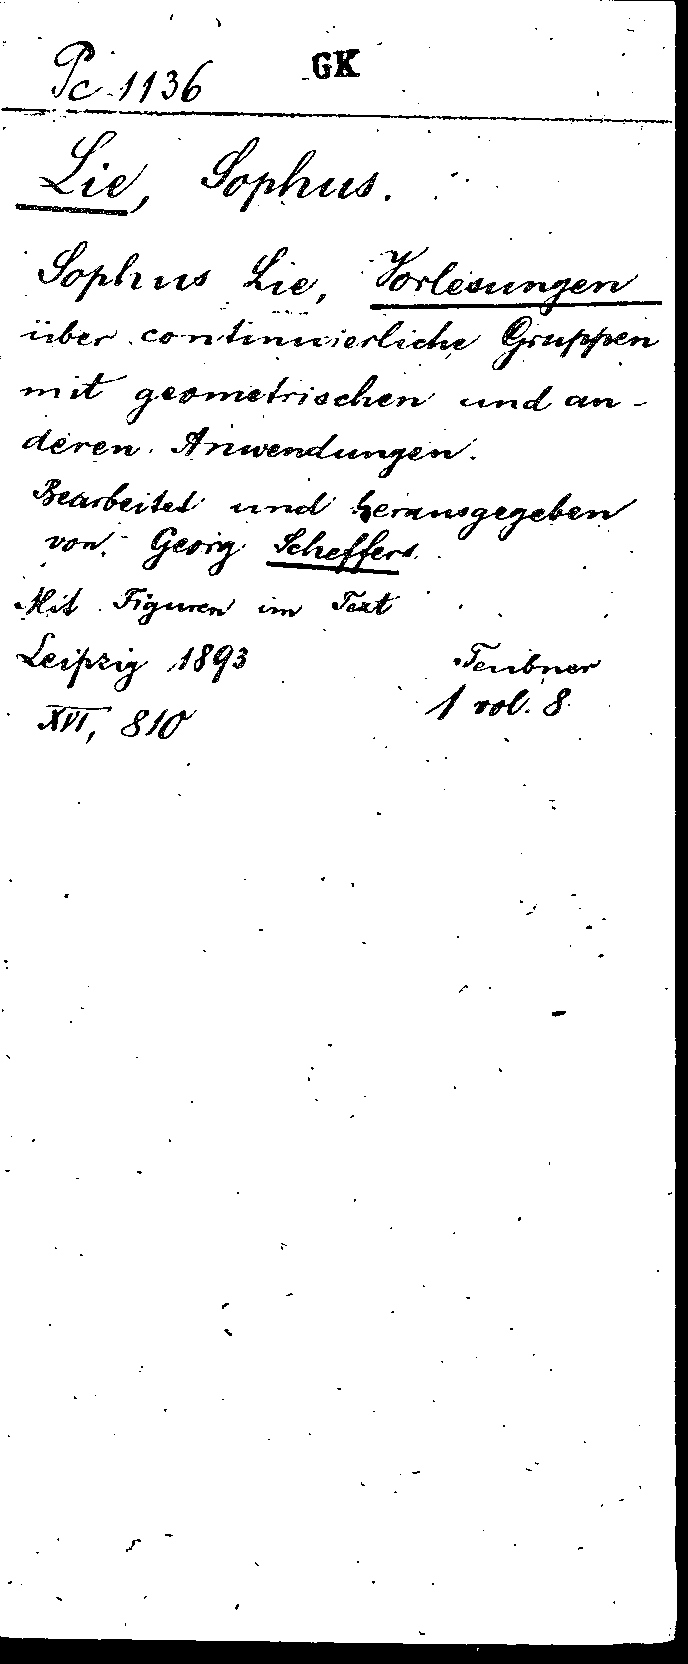 Pc 1136
GK
Lie, Sophus.
Sophus Lie, Vorlesungen
über continuierliche Gruppen
mit geometrischen und an-
deren Anwendungen.
Bearbeitet und herausgegeben
von Georg Scheffers.
Mit Figuren im Text
Leipzig 1893 Teubner
XVI, 810 1 vol. 8.